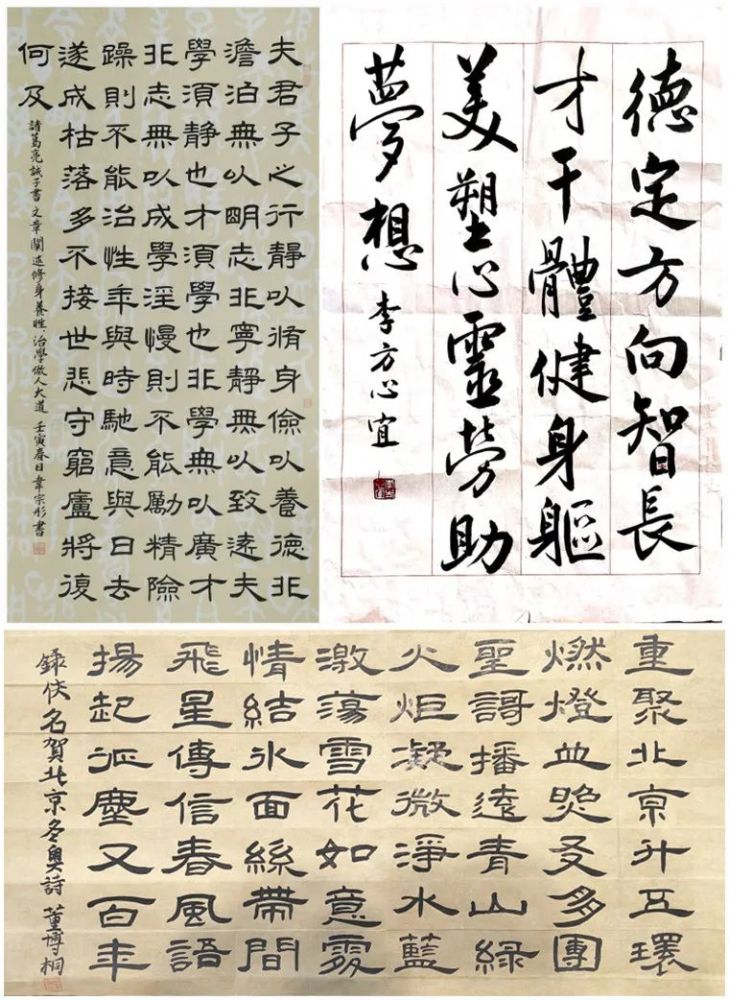 夫君子之行靜以脩身儉以養德非
澹泊無以明志非寧靜無以致遠夫
學須靜也才須學也非學無以廣才
非志無以成學淫慢則不能勵精險
躁則不能治性年與時馳意與日去
遂成枯落多不接世悲守窮廬將復
何及
諸葛亮誡子書文章闡述修身養性、治學做人大道 壬寅春日韋宗彤書
德定方向智長
才干體健身軀
美塑心靈勞助
夢想
李方心宜
重聚北京升五環
燃燈多團
聖謌播遠青山綠
火炬凝微淨水藍
激蕩雪花如意
情結冰面絲帶間
飛星傳信春風語
揚起征塵又百年
錄佚名賀北京冬奧詩 董博桐